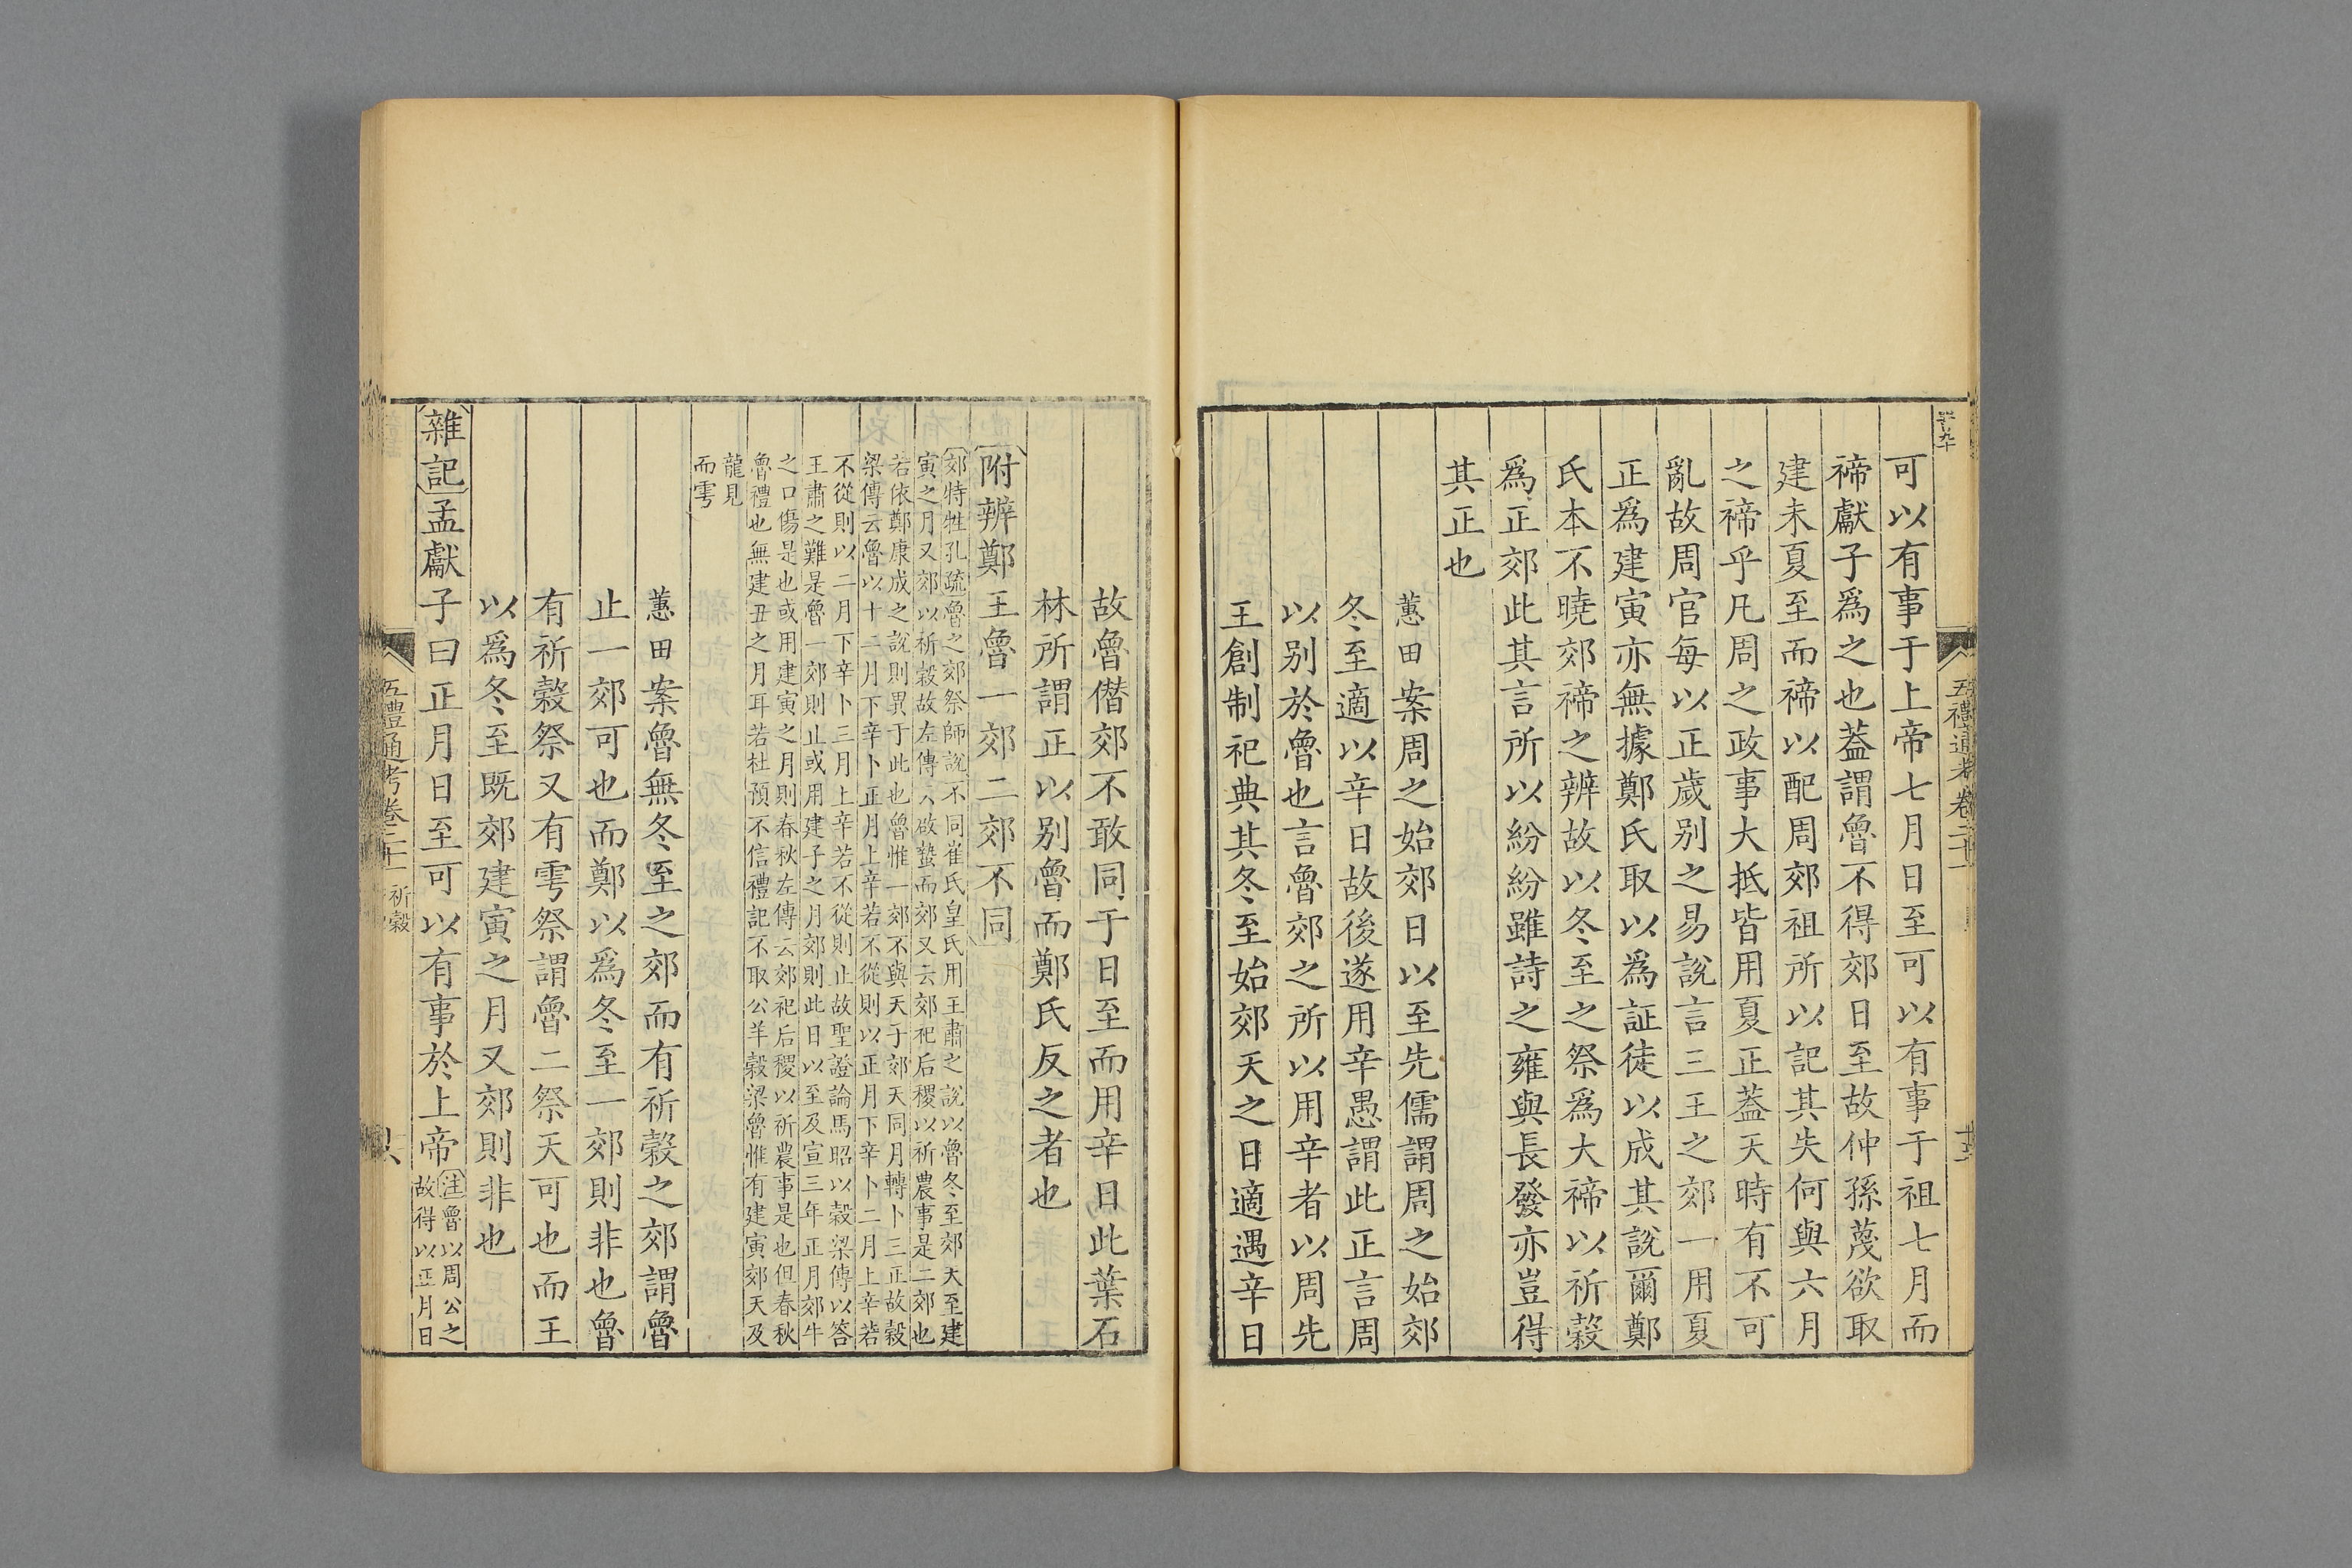 可以有事于上帝七月日至可以有事于祖七月而
禘獻子爲之也蓋謂魯不得郊日至故仲孫蔑欲取
建未夏至而禘以配周郊祖所以記其失何與六月
之禘乎凡周之政事大抵皆用夏正蓋天時有不可
亂故周官每以正歲別之易說言三王之郊一用夏
正爲建寅亦無據鄭氏取以爲証徒以成其說爾鄭
氏本不曉郊禘之辨故以冬至之祭爲大禘以祈穀
爲正郊此其言所以紛紛雖詩之雍與長發亦豈得
其正也
蕙田案周之始郊日以至先儒謂周之始郊
冬至適以辛日故後遂用辛愚謂此正言周
以别於魯也言魯郊之所以用辛者以周先
王創制祀典其冬至始郊天之日適遇辛日
故魯僣郊不敢同于日至而用辛日此葉石
林所謂正以别魯而鄭氏反之者也
附辨鄭王魯一郊二郊不同
郊特牲孔疏魯之郊祭師說不同崔氏皇氏用王肅之說以魯冬至郊天至建
寅之月又郊以祈穀故左傳云啟蟄而郊又云郊祀后稷以祈農事是二郊也
若依鄭康成之說則異于此也魯惟一郊不與天子郊天同月轉卜三正故穀
梁傳云魯以十二月下辛卜正月上辛若不從則以正月下辛卜二月上辛若
不從則以二月下辛卜三月上辛若不從則止故聖證論馬昭以穀梁傳以答
王肅之難是魯一郊則止或用建子之月郊則此日以至及宣三年正月郊牛
之口傷是也或用建寅之月則春秋左傳云郊祀后稷以祈農事是也但春秋
魯禮也無建丑之月耳若杜預不信禮記不取公羊穀梁魯惟有建寅郊天及
龍見
而雩
蕙田案魯無冬至之郊而有祈穀之郊謂魯
止一郊可也而鄭以爲冬至一郊則非也魯
有祈穀祭又有雩祭謂魯二祭天可也而王
以爲冬至既郊建寅之月又郊則非也
雜記孟獻子曰正月日至可以有事於上帝
注魯以周公之
故得以正月日
五禮通考卷二十一 祈穀